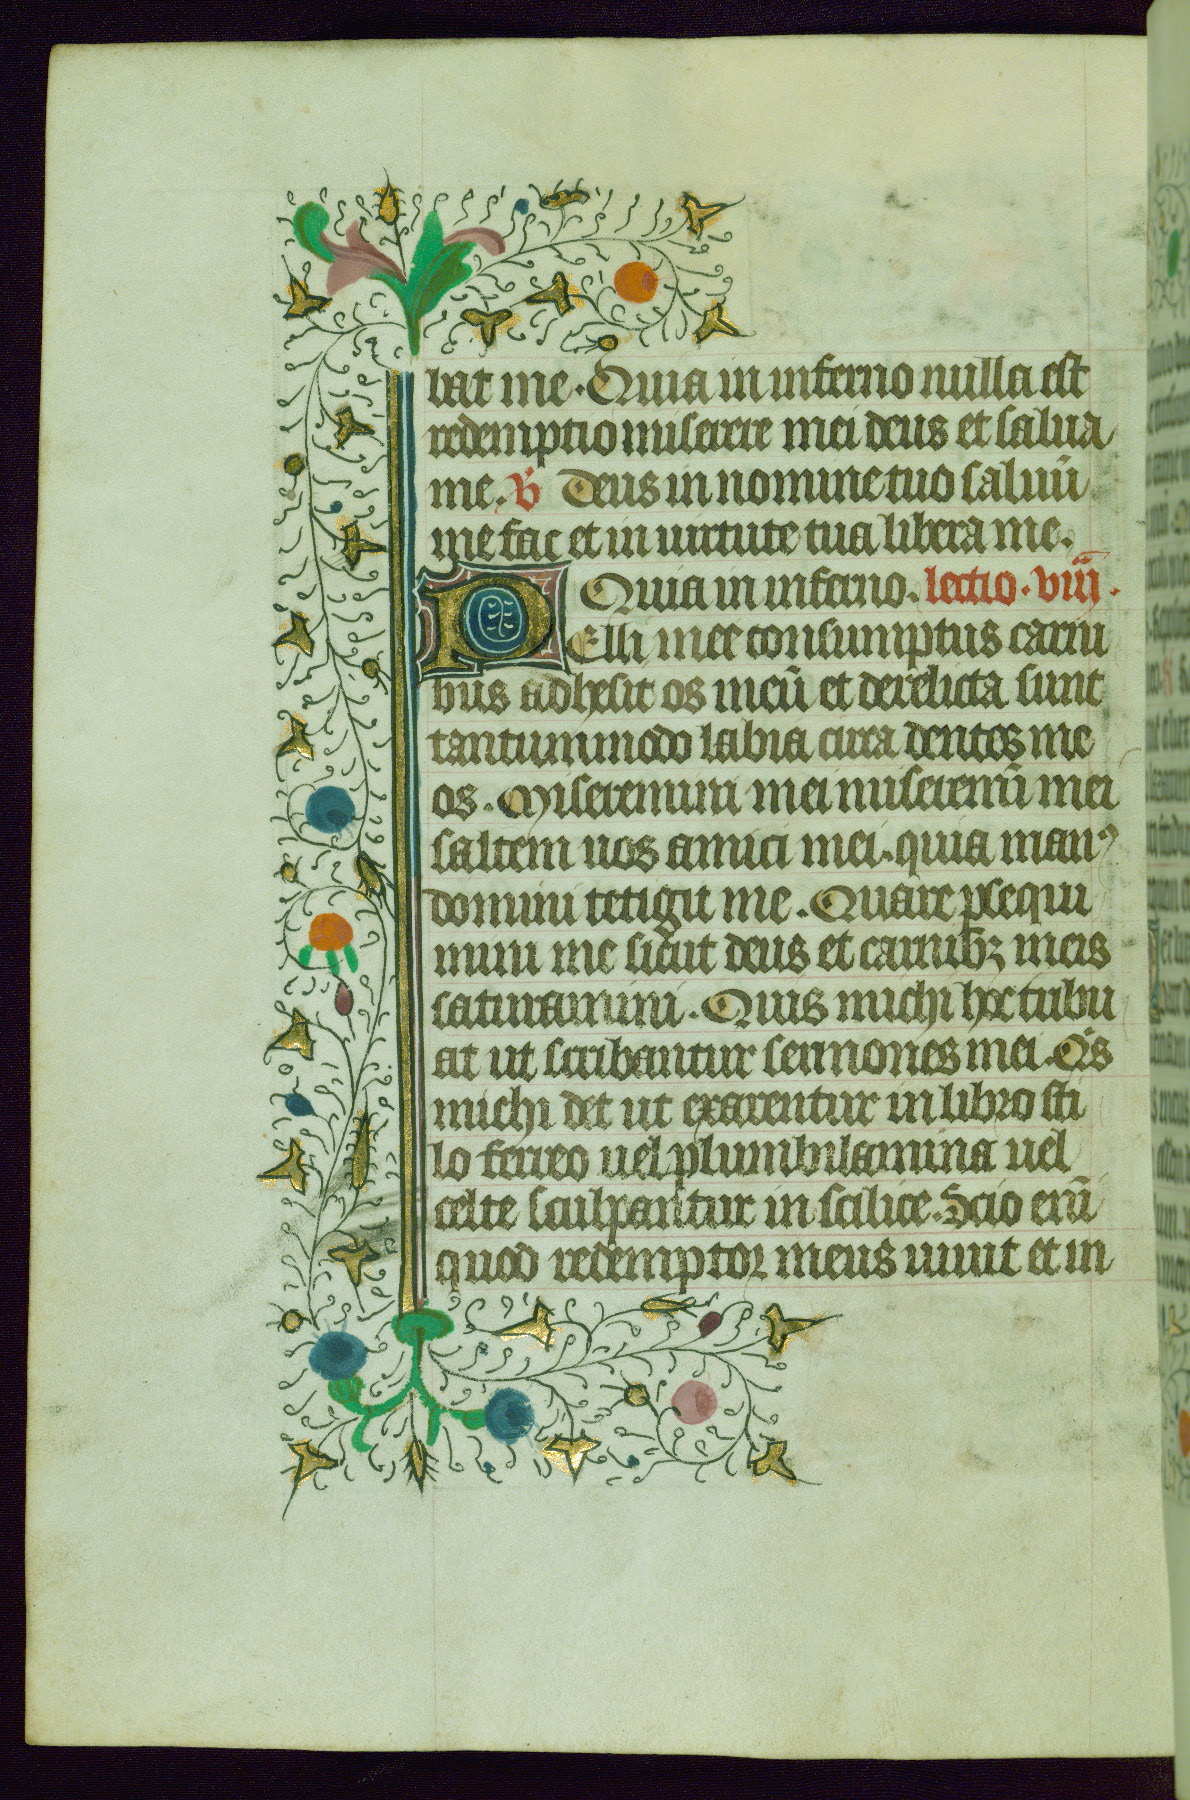 bat me. Quia in inferno nulla est
redemptio miserere mei deus et salua
me. v̄ Deus in nomine tuo saluū
me fac et in uirtute tua libera me.
Quia in inferno. lectio. viii.
Pelli mee consumptus carni
bus adhesit os meū et derelicta sunt
tantummodo labia circa dentes me
os. Miseremini mei miseremī mei
saltem uos amici mei. quia manꝰ
domini tetigit me. Quare ꝑsequi
mini me sicut deus et carnibꝫ meis
saturamini. Quis michi hoc tribu
at ut scribantur sermones mei. Qis
michi det ut exarentur in libro sti
lo ferreo uel plumbi lamina uel
celte sculpantur in scilice. Scio enī
quod redemptor meus uiuit et in